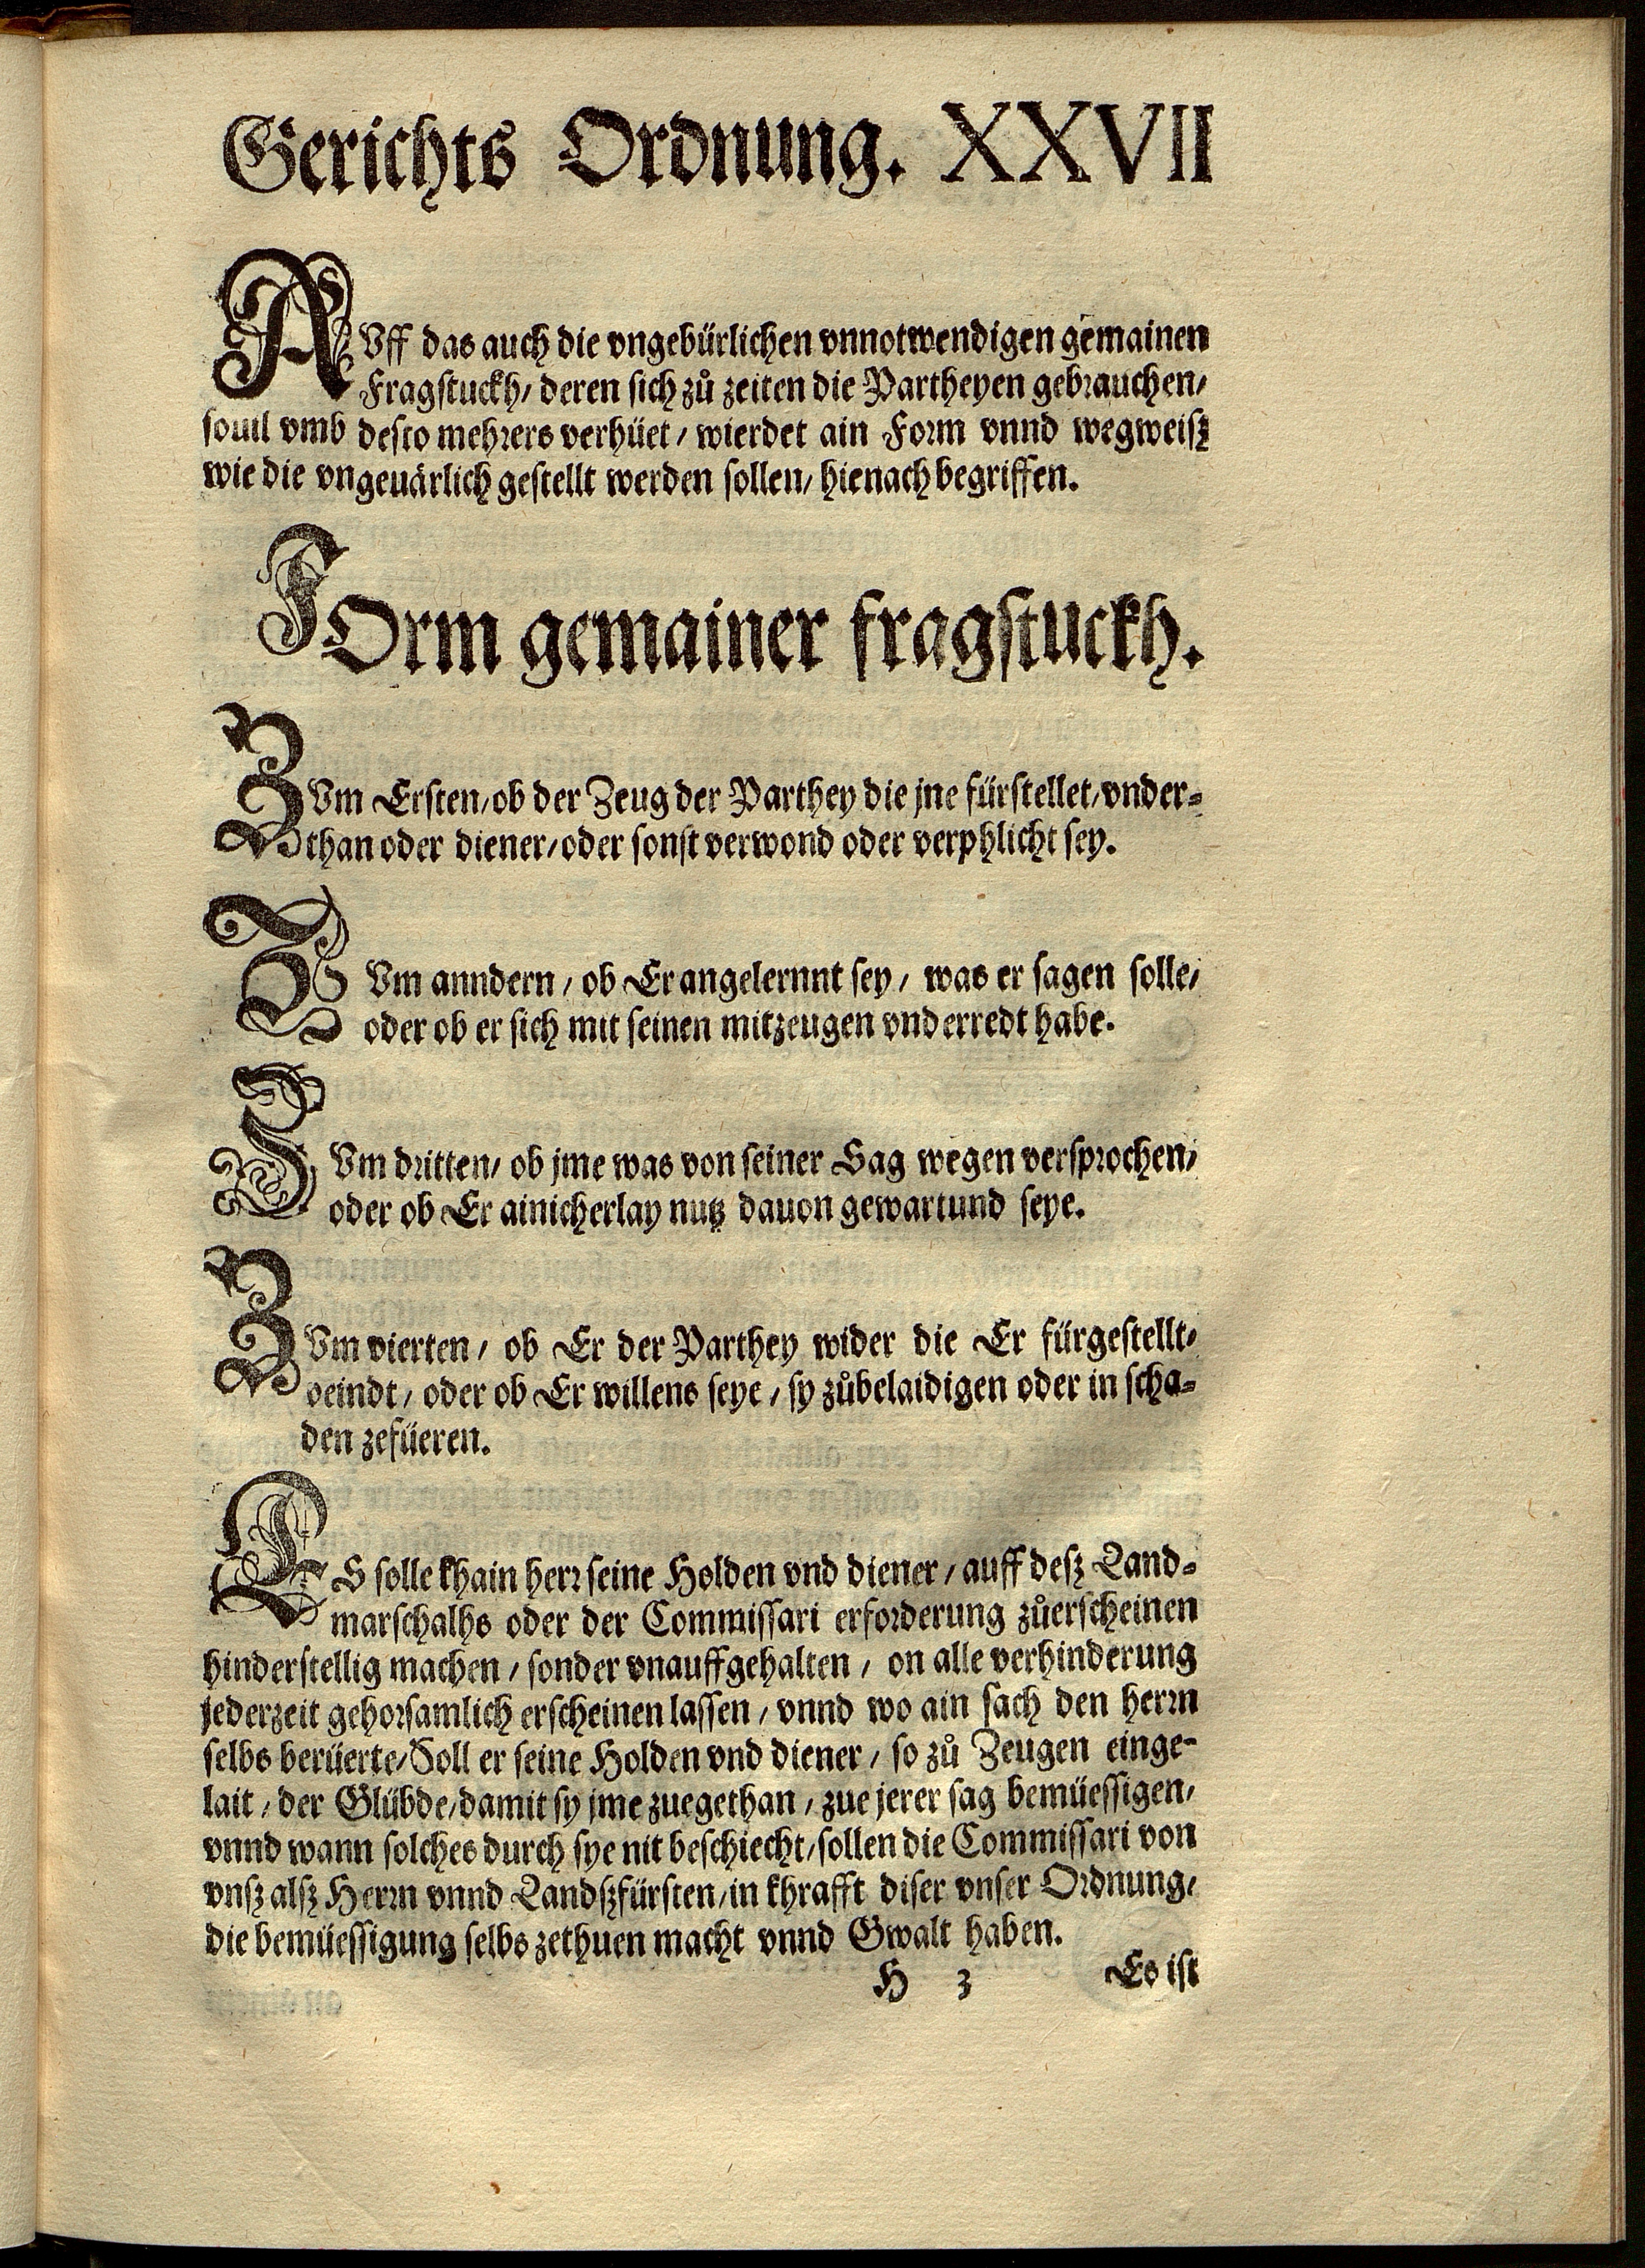 Gerichts Ordnung. XXVII
AVff das auch die vngebürlichen vnnotwendigen gemainen
Fragstuckh/ deren sich zů zeiten die Partheyen gebrauchen/
souil vmb desto mehrers verhüet / wierdet ain Form vnnd wegweisz
wie die vngeuärlich gestellt werden sollen/ hienach begriffen.
FOrm gemainer fragstuckh.
ZVm Ersten/ ob der Zeug der Parthey die jne fürstellet/ vnder-
than oder diener/ oder sonst verwond oder verphlicht sey.
ZVm anndern / ob Er angelernnt sey / was er sagen solle/
oder ob er sich mit seinen mitzeugen vnderredt habe.
ZVm dritten/ ob jme was von seiner Sag wegen versprochen/
oder ob Er ainicherlay nutz dauon gewartund seye.
ZVm vierten / ob Er der Parthey wider die Er fürgestellt/
veindt / oder ob Er willens seye / sy zůbelaidigen oder in scha-
den zefüeren.
ES solle khain herr seine Holden vnd diener / auff desz Land-
marschalhs oder der Commissari erforderung zůerscheinen
hinderstellig machen / sonder vnauffgehalten / on alle verhinderung
jederzeit gehorsamlich erscheinen lassen / vnnd wo ain sach den herrn
selbs berüerte/ Soll er seine Holden vnd diener / so zů Zeugen einge-
lait / der Glübde/ damit sy jme zuegethan / zue jerer sag bemüessigen/
vnnd wann solches durch sye nit beschiecht/ sollen die Commissari von
vnsz alsz Herrn vnnd Landszfürsten/ in khrafft diser vnser Ordnung/
die bemüessigung selbs zethuen macht vnnd Gwalt haben.
H 3 Es ist